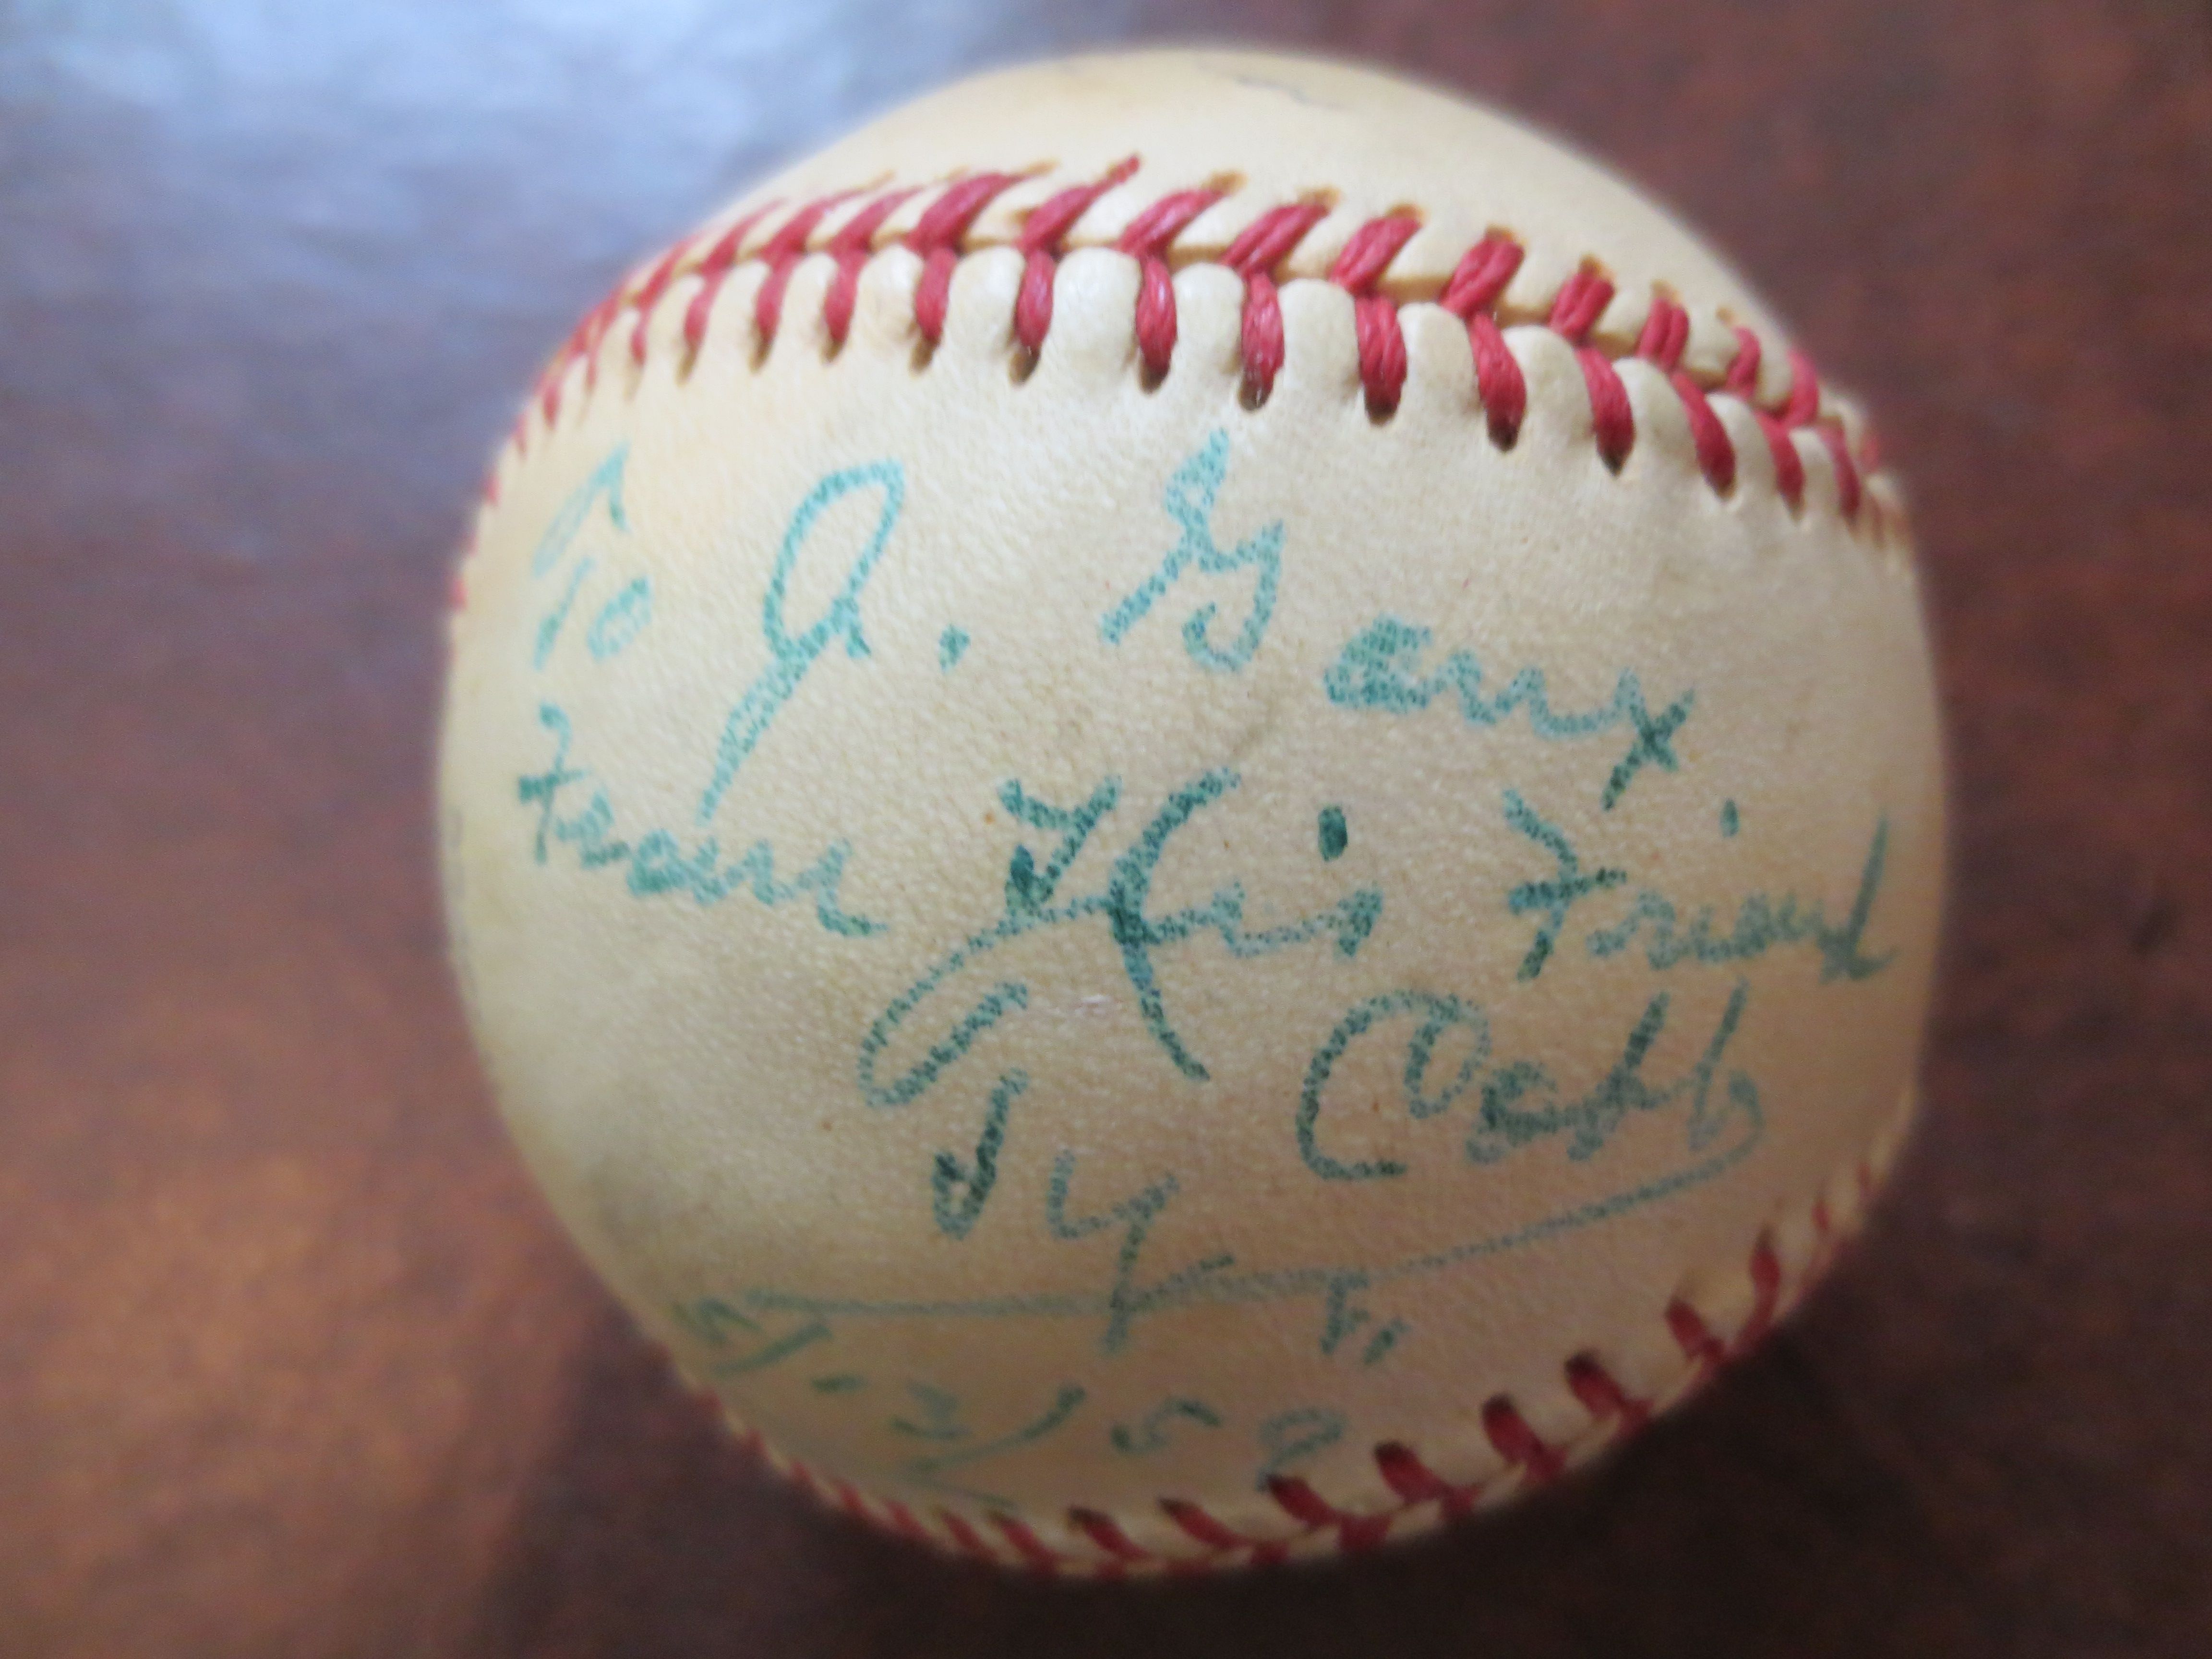 To J. Garry
From His Friend
Ty Cobb